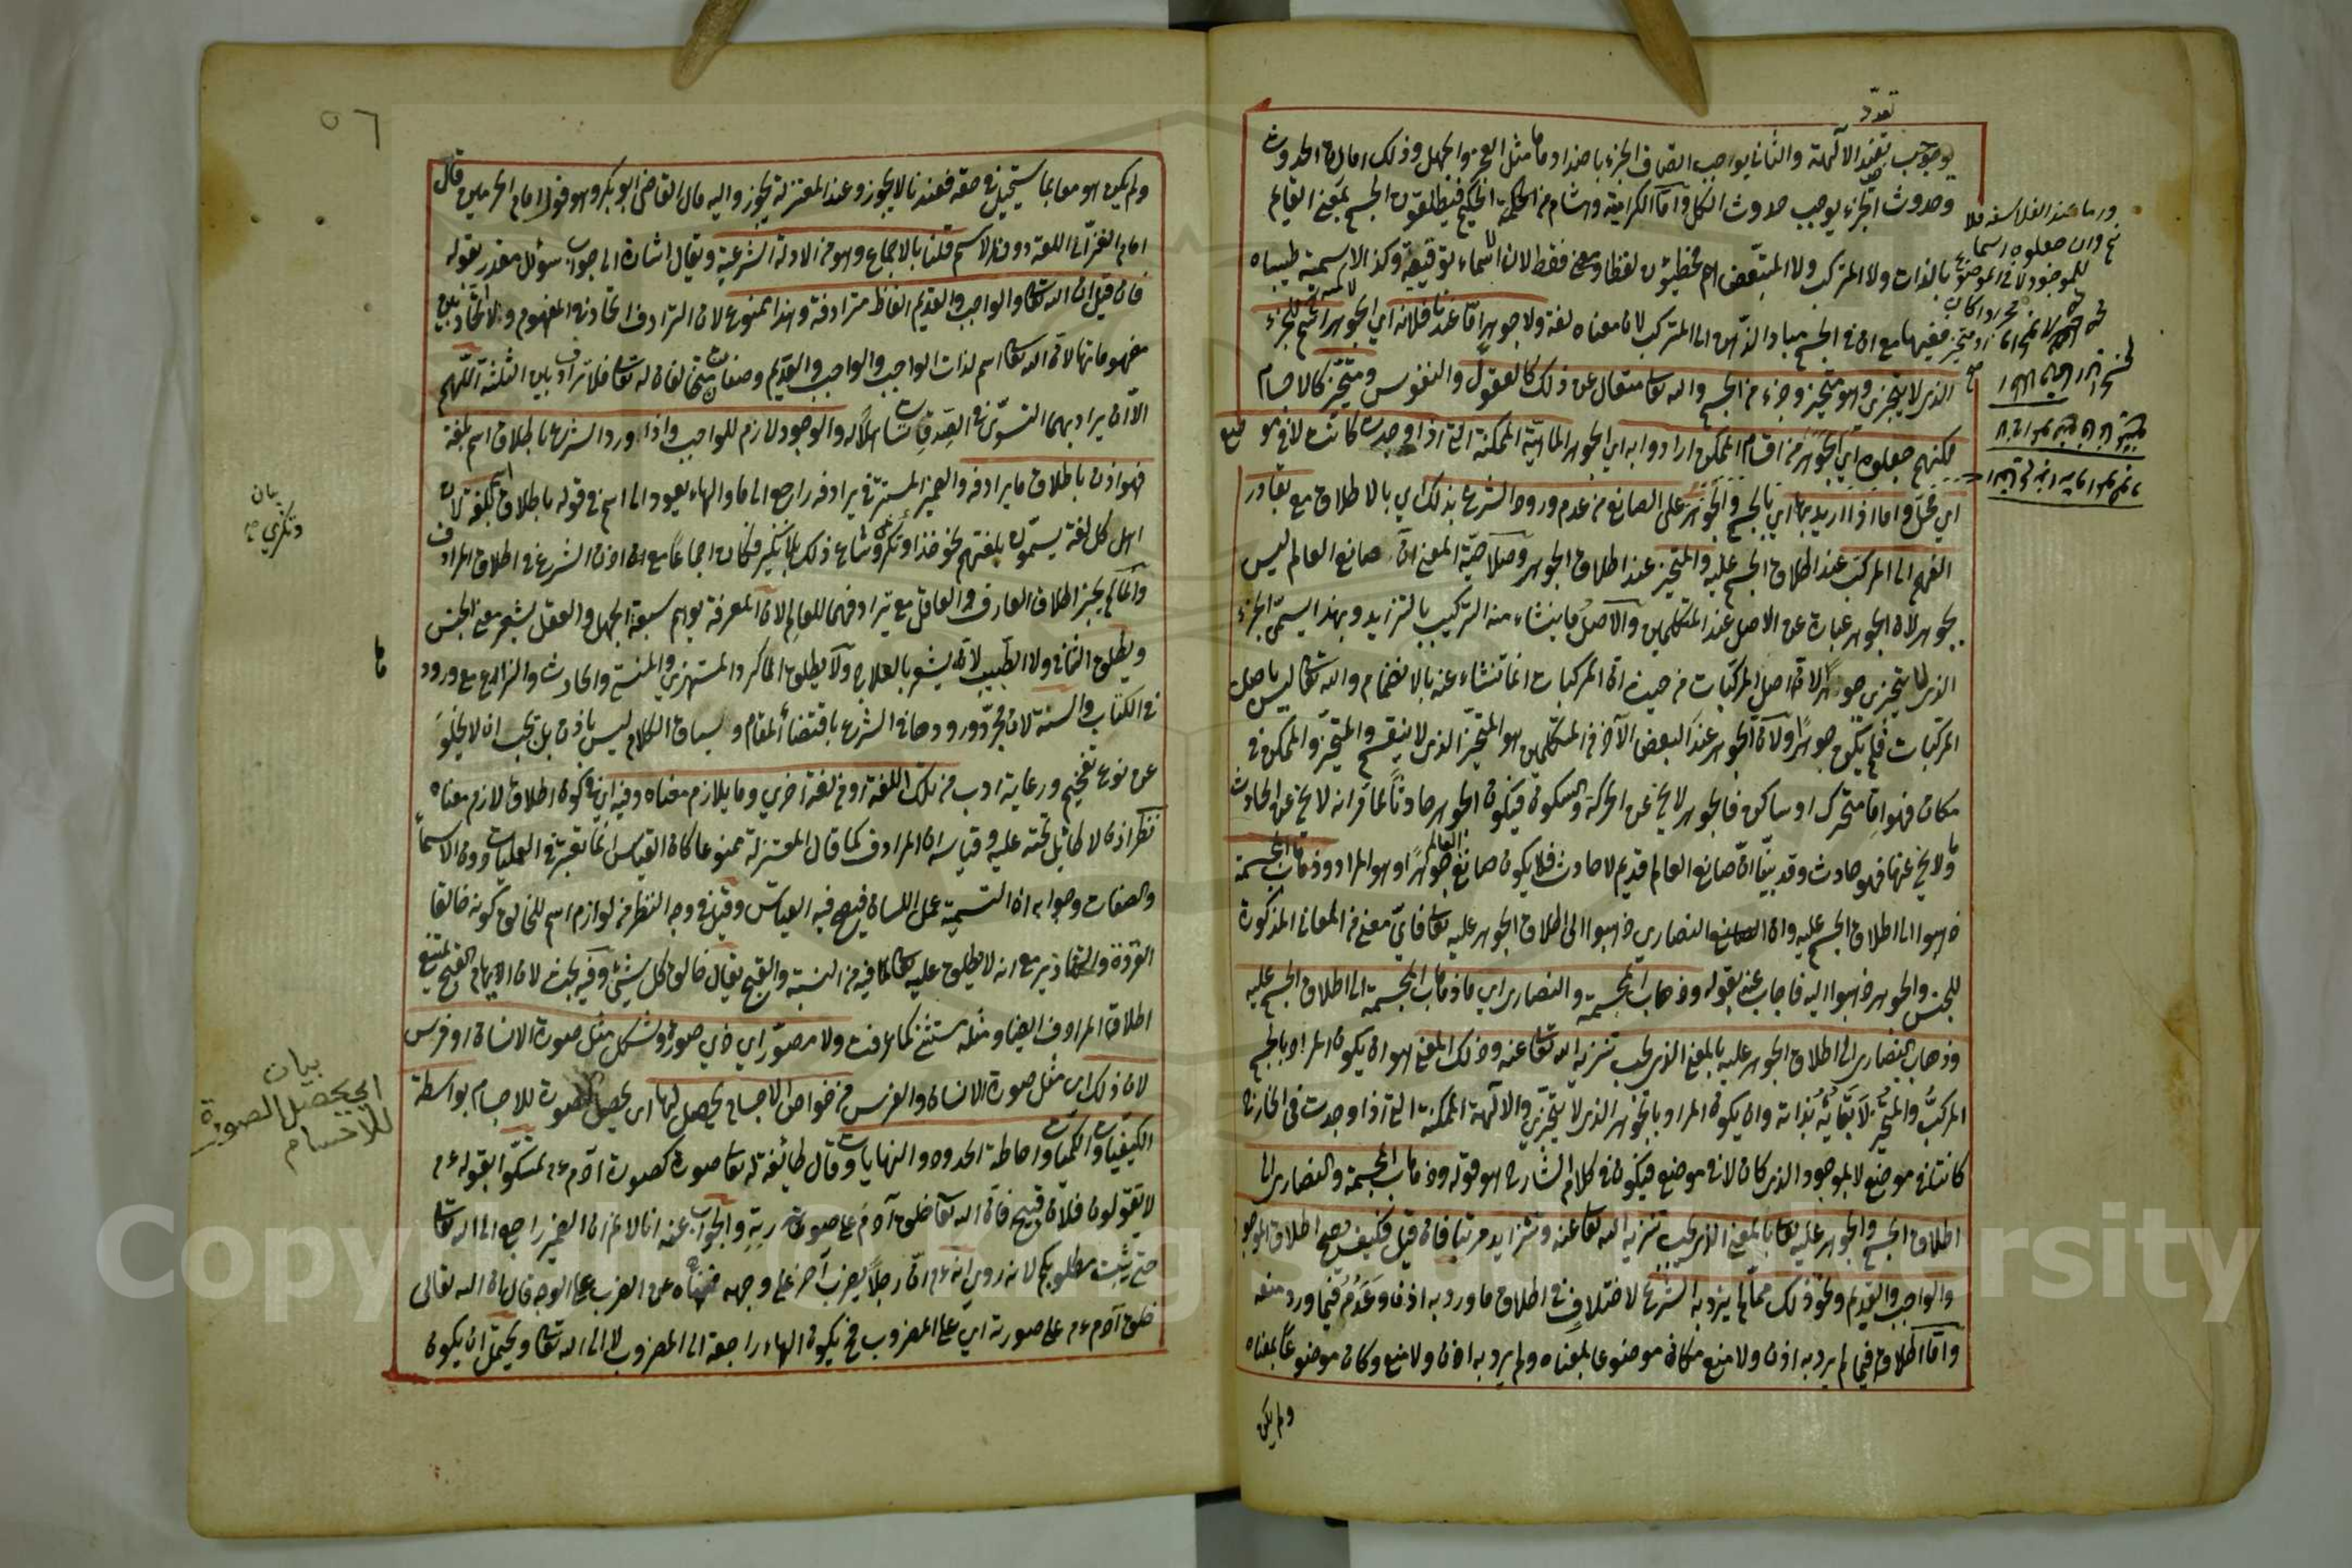 تعدد
يوجب تعدد الآلهة والثاني يوجب اتصاف الجزء باضدادها مثل العجز والجهل وذلك امارة الحدوث
وحدوث الجزء يوجب حدوث الكل واما الكرامية وهشام من الحكم فيطلقون الجسم بمعنى القايم
بالذات ولا المتركب ولا المتبعض فهم مخطئون لفظا ومعنى فقط لان اسماء توقيفية وكذا الاسمية
مع ان في الجسم مبادر الذهن الى المتركب لان معناه لغة ولا جوهر اما عندنا فلانه اي الجوهر اسم للجزء
الذي لا يتجزى وهو متحيز وجزء من الجسم والله تعالى متعال عن ذلك كالعقول والنفوس ومتحيز كالاجسام
لكنهم جعلوه اي الجوهر من اقسام الممكن ارادوا به اي الجوهر الماهية الممكنة التي اذا وجدت كانت لا في موضع
اي محل واما اذا اريد بهما اي بالجسم والجوهر على الصانع من عدم ورود الشرع بذلك اي بالاطلاق مع تبادر
الفهم الى المركب عند اطلاق الجسم عليه والمتحيز عند اطلاق الجوهر وصلاحية المعنى ان صانع العالم ليس
بجوهر لان الجوهر عبارة عن الاصل عند المتكلمين والاصل ما ينشاء منه التركيب بالتزايد وبهذا يسمى الجزء
الذي لا يتجزى جوهرا لانه اصل المركبات من حيث ان المركبات انما تنشاء عنه بالانضمام والله تعالى ليس باصل
المركبات فلم يكن جوهرا ولان الجوهر عند البعض الآخر من المتكلمين هو المتحيز الذي لا ينقسم والمتحيز والممكن في
مكان فهو اما متحرك او ساكن فالجوهر لا يخ عن الحركة والسكون فيكون الجوهر حادثا لما قرانه لا يخ عن الحادث
ولا يخ عنها فهو حادث وقد بينا ان صانع العالم قديم لا حادث فلا يكون صانع العالم جوهرا وهو المراد وذهاب المجسمة
ذهبوا الى اطلاق الجسم عليه وان النصارى ذهبوا الى اطلاق الجوهر عليه تعالى فاي معنى من المعاني المذكورة
للجسم والجوهر ذهبوا اليه فاجاب عنه بقوله وذهاب المجسمة والنصارى اي ما ذهاب المجسمة الى اطلاق الجسم عليه
وذهاب النصارى الى اطلاق الجوهر عليه بالمعنى الذي يجب تنزيه الله تعالى عنه وذلك المعنى هو ان يكون المراد بالجسم
المركب والمتحيز لا بقائه بذاته وان يكون المراد بالجوهر الذي لا يتجزى والا الهية الممكنة التي اذا وجدت في الخارج
كانت لا في موضع لا الموجود الذي كان لا في موضع فيكون في كلام الشارح هو قوله وذهاب المجسمة والنصارى الى
اطلاق الجسم والجوهر عليه تعالى بالمعنى الذي يجب تنزيه الله تعالى عنه فان قيل فكيف يصح اطلاق الموجود
والواجب والقديم ونحو ذلك مما لم يرد به الشرع لا اختلاف في اطلاق ما ورد به اذن وعدمه فيما ورد منعه
واما اطلاق فيما لم يرد به اذن ولا منع وكان موضوعا بمعناه ولم يرد به اذن ولا منع وكان موضوعا بمعناه
ولم يكن
٥٦
ولم يكن هو موهما بما يستحيل في حقه فعندنا لا يجوز وعند المعتزلة يجوز واليه مال القاضي ابو بكر وهو قول امام الحرمين قال
امام الغزالي اللغة دون الاسم قلنا بالاجماع وهو من الادلة الشرعية ويقال اشارة الى جواب سؤال مقدر بقوله
فان قيل ان الله تعالى والواجب والقديم الفاظ مترادفة وهذا ممنوع لان الترادف اتحاد في المفهوم ولا اتحاد بين
مفهوماتها لان الله تعالى اسم لذات الواجب والواجب والقديم وصفان متخالفان له تعالى فلا ترادف بين الثلثة اللهم
الا ان يراد بهما التسوي في الصدق تساهلا له والوجود لازم للواجب واذا ورد الشرع باطلاق اسم بلغة
فهو اذن باطلاق ما يرادفه والضمير المستتر في يرادفه راجع الى ما والهاء يعود الى اسم في قوله باطلاق اسم بلغة لان
اهل كل لغة يسمون بلغتهم نحو خدا وتكري وشاع ذلك بلا نكير فكان اجماعا مع ان اذن الشرع في اطلاق المرادف
وانما لم يجز اطلاق العارف والعاقل مع ترادفهما للعالم لان المعرفة يوهم سبقة الجهل والعقل يشعر معنى الحبس
ويطلق الشافي ولا الطبيب لانه يشعر بالعلاج ولا يطلق الماكر والمستهزي والمنسي والحارث والزارع مع ورود
في الكتاب والسنة لان مجرد ورودها في الشرع باقتضاء المقام وسياق الكلام ليس باذن بل يجب ان لا يخلو
عن نوع تفخيم ورعاية ادب من تلك اللغة او من لغة اخرى وما يلازم معناه وفيه اي في كون اطلاق لازم معناه
نظر اذن لا طائل تحته عليه وقياسه ان المرادف كما قال المعتزلة ممنوعا كان القياس انما تعتبر في العمليات دون الاسماء
والصفات وجوابه ان التسمية عمل اللسان فيصح فيه القياس وقيل في وجه النظر من لوازم اسم للخالق كونه خالقا
القردة والخنازير مع انه لا يطلق عليه تعالى لما فيه من النسبة والقبح يقال خالق كل شيئ وفيه بحث لان الايهام القبح يمنع
اطلاق المرادف ايضا ومثله مستثنى كما عرفت ولا مصور اي ذي صورة وشكل مثل صورة الانسان او فرس
لان ذلك اي مثل صورة الانسان والفرس من خواص الاجسام يحصل لها اي يحصل الصورة للاجسام بواسطة
الكيفيات والكميات واحاطة الحدود والنهايات وقال طائفة له تعالى صورة كصورة آدم عم تمسكوا بقوله عم
لا تقولون فلان قبيح فان الله تعالى خلق آدم على صورة ربه والجواب عنه انا لا نم ان الضمير راجع الى الله تعالى
حتى يثبت مطلوبكم لانه روي انه عم ان رجلا يضرب آخر على وجهه فنهاه عن الضرب على الوجه قال ان الله تعالى
خلق آدم عم على صورته اي على المضروب فح يكون الهاء راجعة الى المضروب لا الى الله تعالى ويحتمل ان يكون
بيان
وتكري
ما
بيان
اي يحصل الصورة
للاجسام